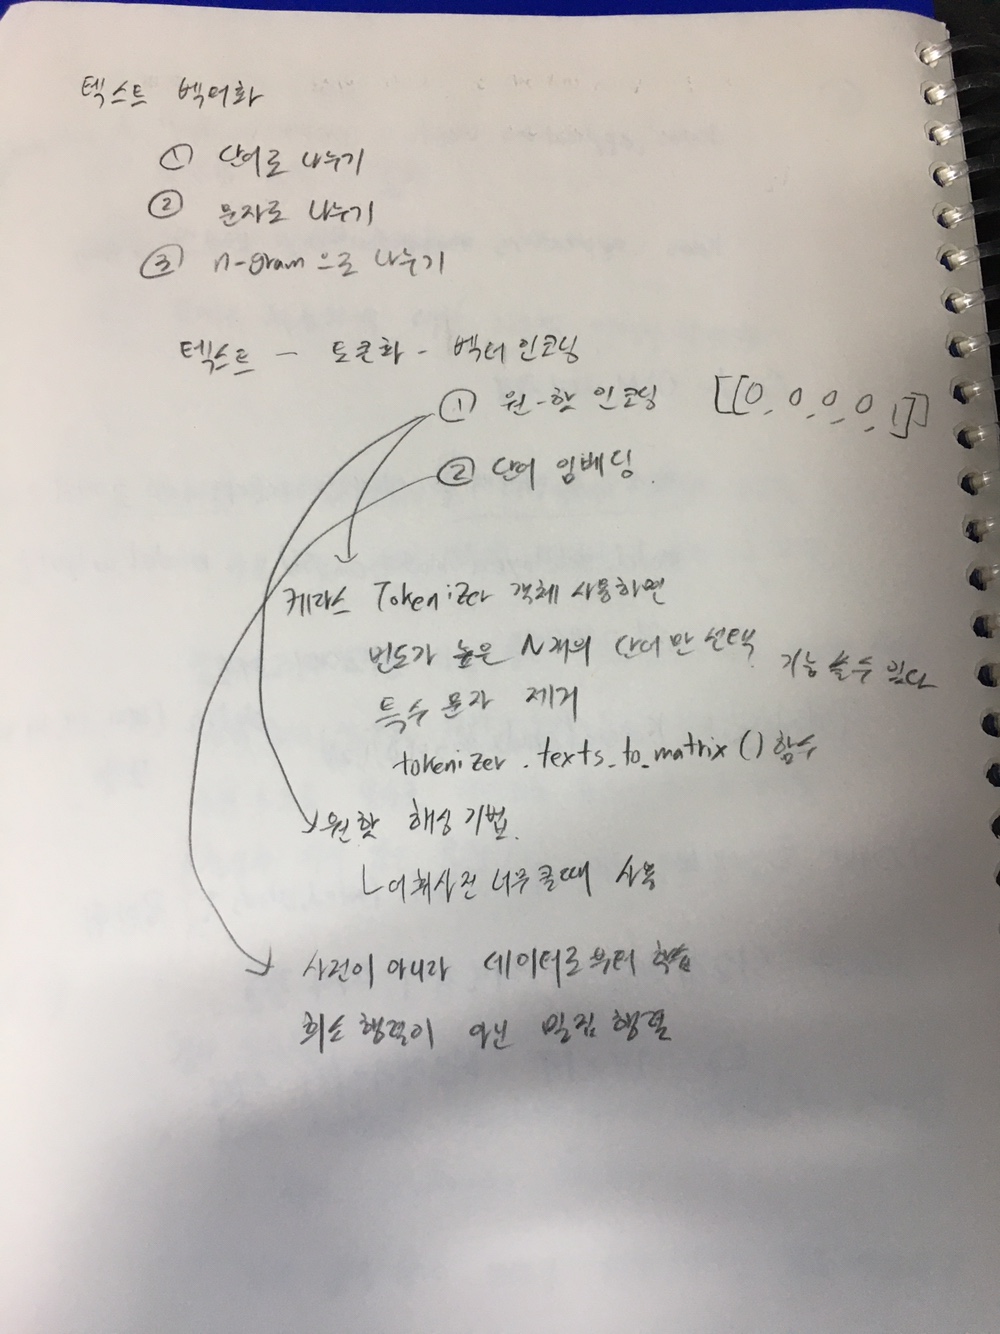 텍스트 벡터화
① 단어로 나누기
② 문자로 나누기
③ n-gram으로 나누기
텍스트 - 토큰화 - 벡터 인코딩
① 원-핫 인코딩 [[0, 0, 0, 0, 1]]
② 단어 임베딩.
케라스 Tokenizer 객체 사용하면
빈도가 높은 N개의 단어만 선택 기능 쓸 수 있다
특수 문자 제거
tokenizer.texts_to_matrix() 함수
원핫 해싱 기법.
ㄴ어휘사전 너무 클때 사용
사전이 아니라 데이터로부터 학습
희소 행렬이 아닌 밀집 행렬